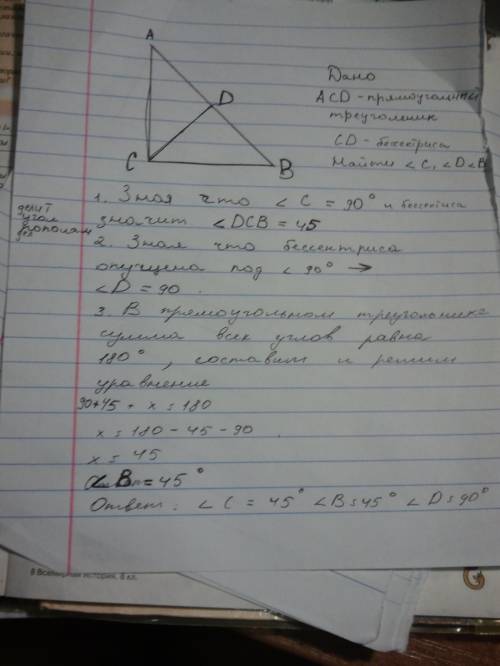 A
D
C
B
Дано
ACD - прямоугольный
треуголник
CD - бессектриса
Найти ∠C, ∠D ∠B
1. Зная что ∠C = 90° и бессектриса
делит угол пополам
значит ∠DCB = 45
2. Зная что бессектриса
опущена под ∠90° →
∠D = 90.
3. В прямоугольном треугольнике
сумма всех углов равна
180°, составим и решим
уравнение
90+45+x=180
x=180-45-90
x=45
∠B=45°
Ответ: ∠C=45° ∠B=45° ∠D=90°
8 Всемирная история, 8 кл.